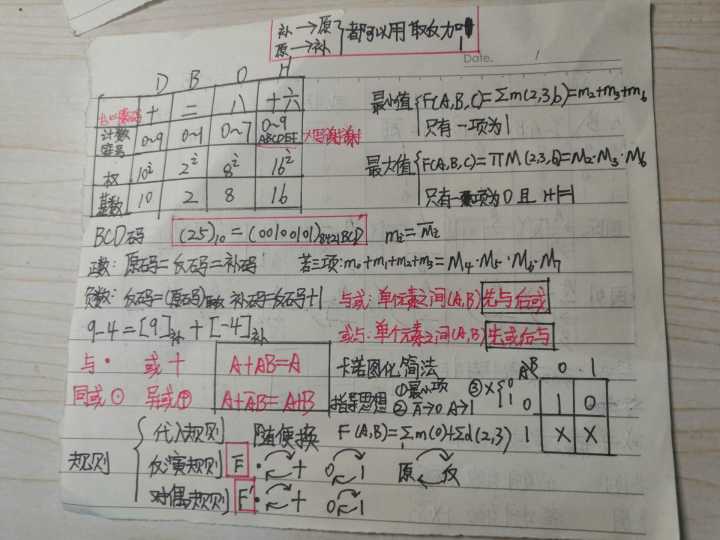 补→原
原→补 都可以用取反加1
Date.
D B O H
十 二 八 十六
计数符号 0~9 0~1 0~7 0~9 ABCDEF
权 10^i 2^i 8^i 16^i
基数 10 2 8 16
最小值 F(A,B,C)=Σm(2,3,6)=m₂+m₃+m₆
只有一项为1
最大值 F(A,B,C)=ΠM(2,3,6)=M₂·M₃·M₆
只有一项为0且
BCD码 (25)₁₀=(00100101)8421BCD mᵢ=M̅ᵢ
正数:原码=反码=补码 若三项:m₀+m₁+m₂+m₃=M₄·M₅·M₆·M₇
负数:反码=(原码)取反 补码=反码+1 与或:单个元素之间(A,B)先与后或
9-4=[9]补+[-4]补 或与:单个元素之间(A,B)先或后与
与· 或+ A+AB=A 卡诺图化简法
同或⊙ 异或⊕ A+A̅B=A+B 指导思想 ①最小项 ②A̅→0 A→1 ③X{0 1
A B 0 1
0 1 0
1 X X
F(A,B)=Σm(0)+Σd(2,3)
规则 代入规则 随便换
反演规则 F̅ · + 0 1 原 反
对偶规则 F' · + 0 1